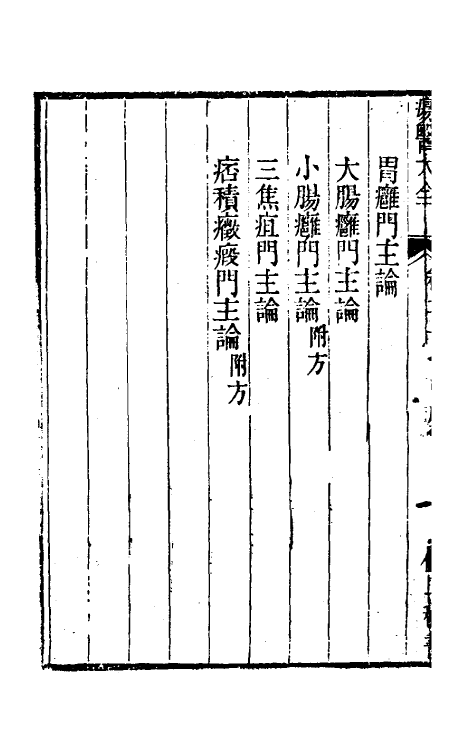 胃癰門主論
大腸癰門主論
小腸癰門主論附方
三焦疽門主論
痞積癥瘕門主論附方